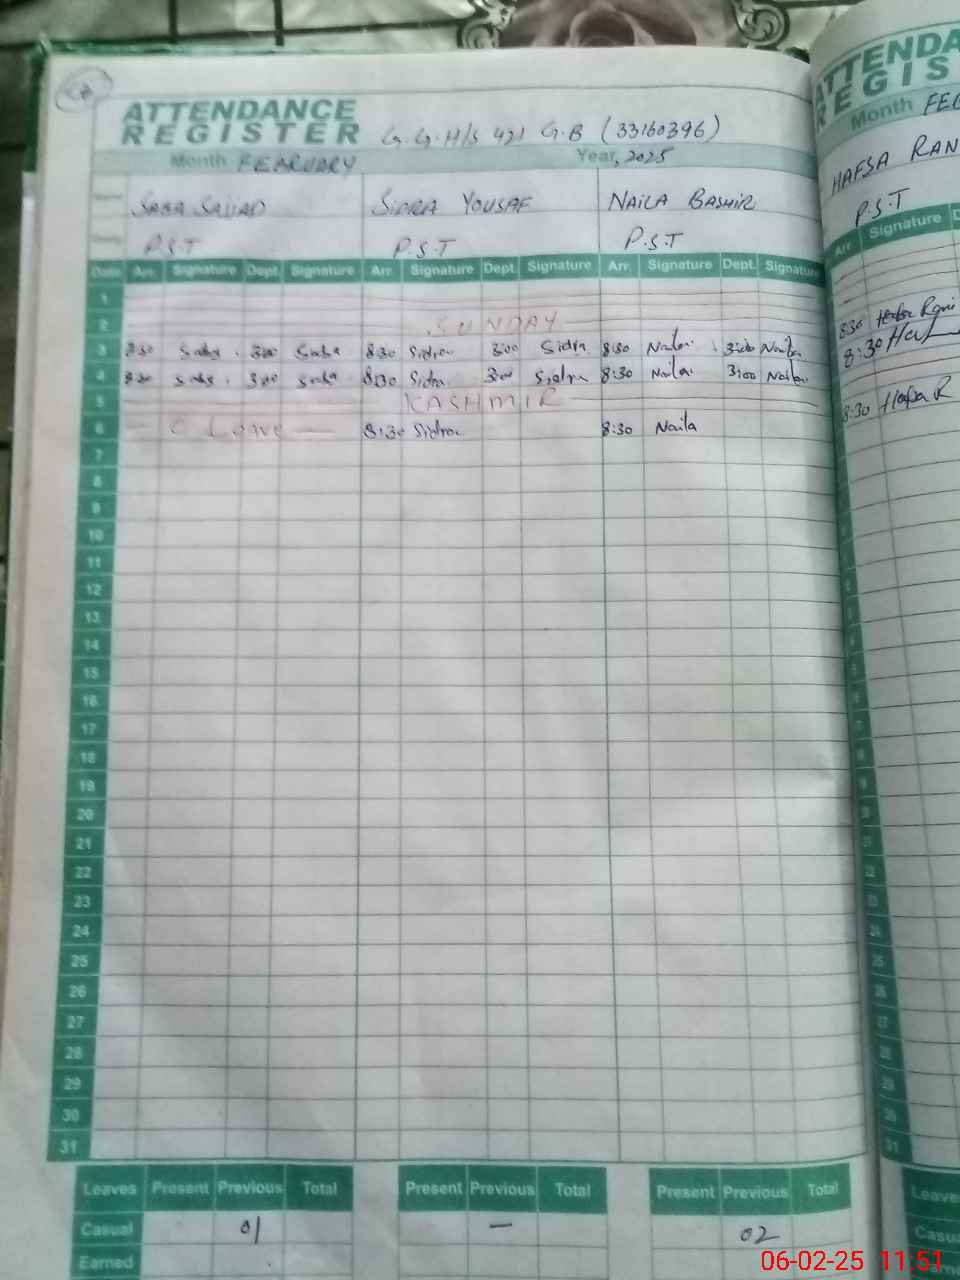 ATTENDANCE
REGISTER G.G.H/S 421 G.B (33160396)
Month FEBRUARY Year, 2025
SABA SAJJAD SIDRA YOUSAF NAILA BASHIR
P.S.T P.S.T P.S.T
Date Arr. Signature Dept. Signature Arr. Signature Dept. Signature Arr. Signature Dept. Signature
1
2 SUNDAY
3 8:30 Saba 3:00 Saba 8:30 Sidra 3:00 Sidra 8:30 Naila 3:00 Naila
4 8:30 Saba 3:00 Saba 8:30 Sidra 3:00 Sidra 8:30 Naila 3:00 Naila
5 KASHMIR
6 C Leave 8:30 Sidra 8:30 Naila
7
8
9
10
11
12
13
14
15
16
17
18
19
20
21
22
23
24
25
26
27
28
29
30
31
Leaves Present Previous Total Present Previous Total Present Previous Total
Casual 01 — 02
Earned
ATTENDA
REGIS
Month FEB
HAFSA RAN
P.S.T
Arr. Signature D
8:30 Hafsa Rani
8:30 Haf
8:30 Hafsa R
Leave
Casu
06-02-25 11:51